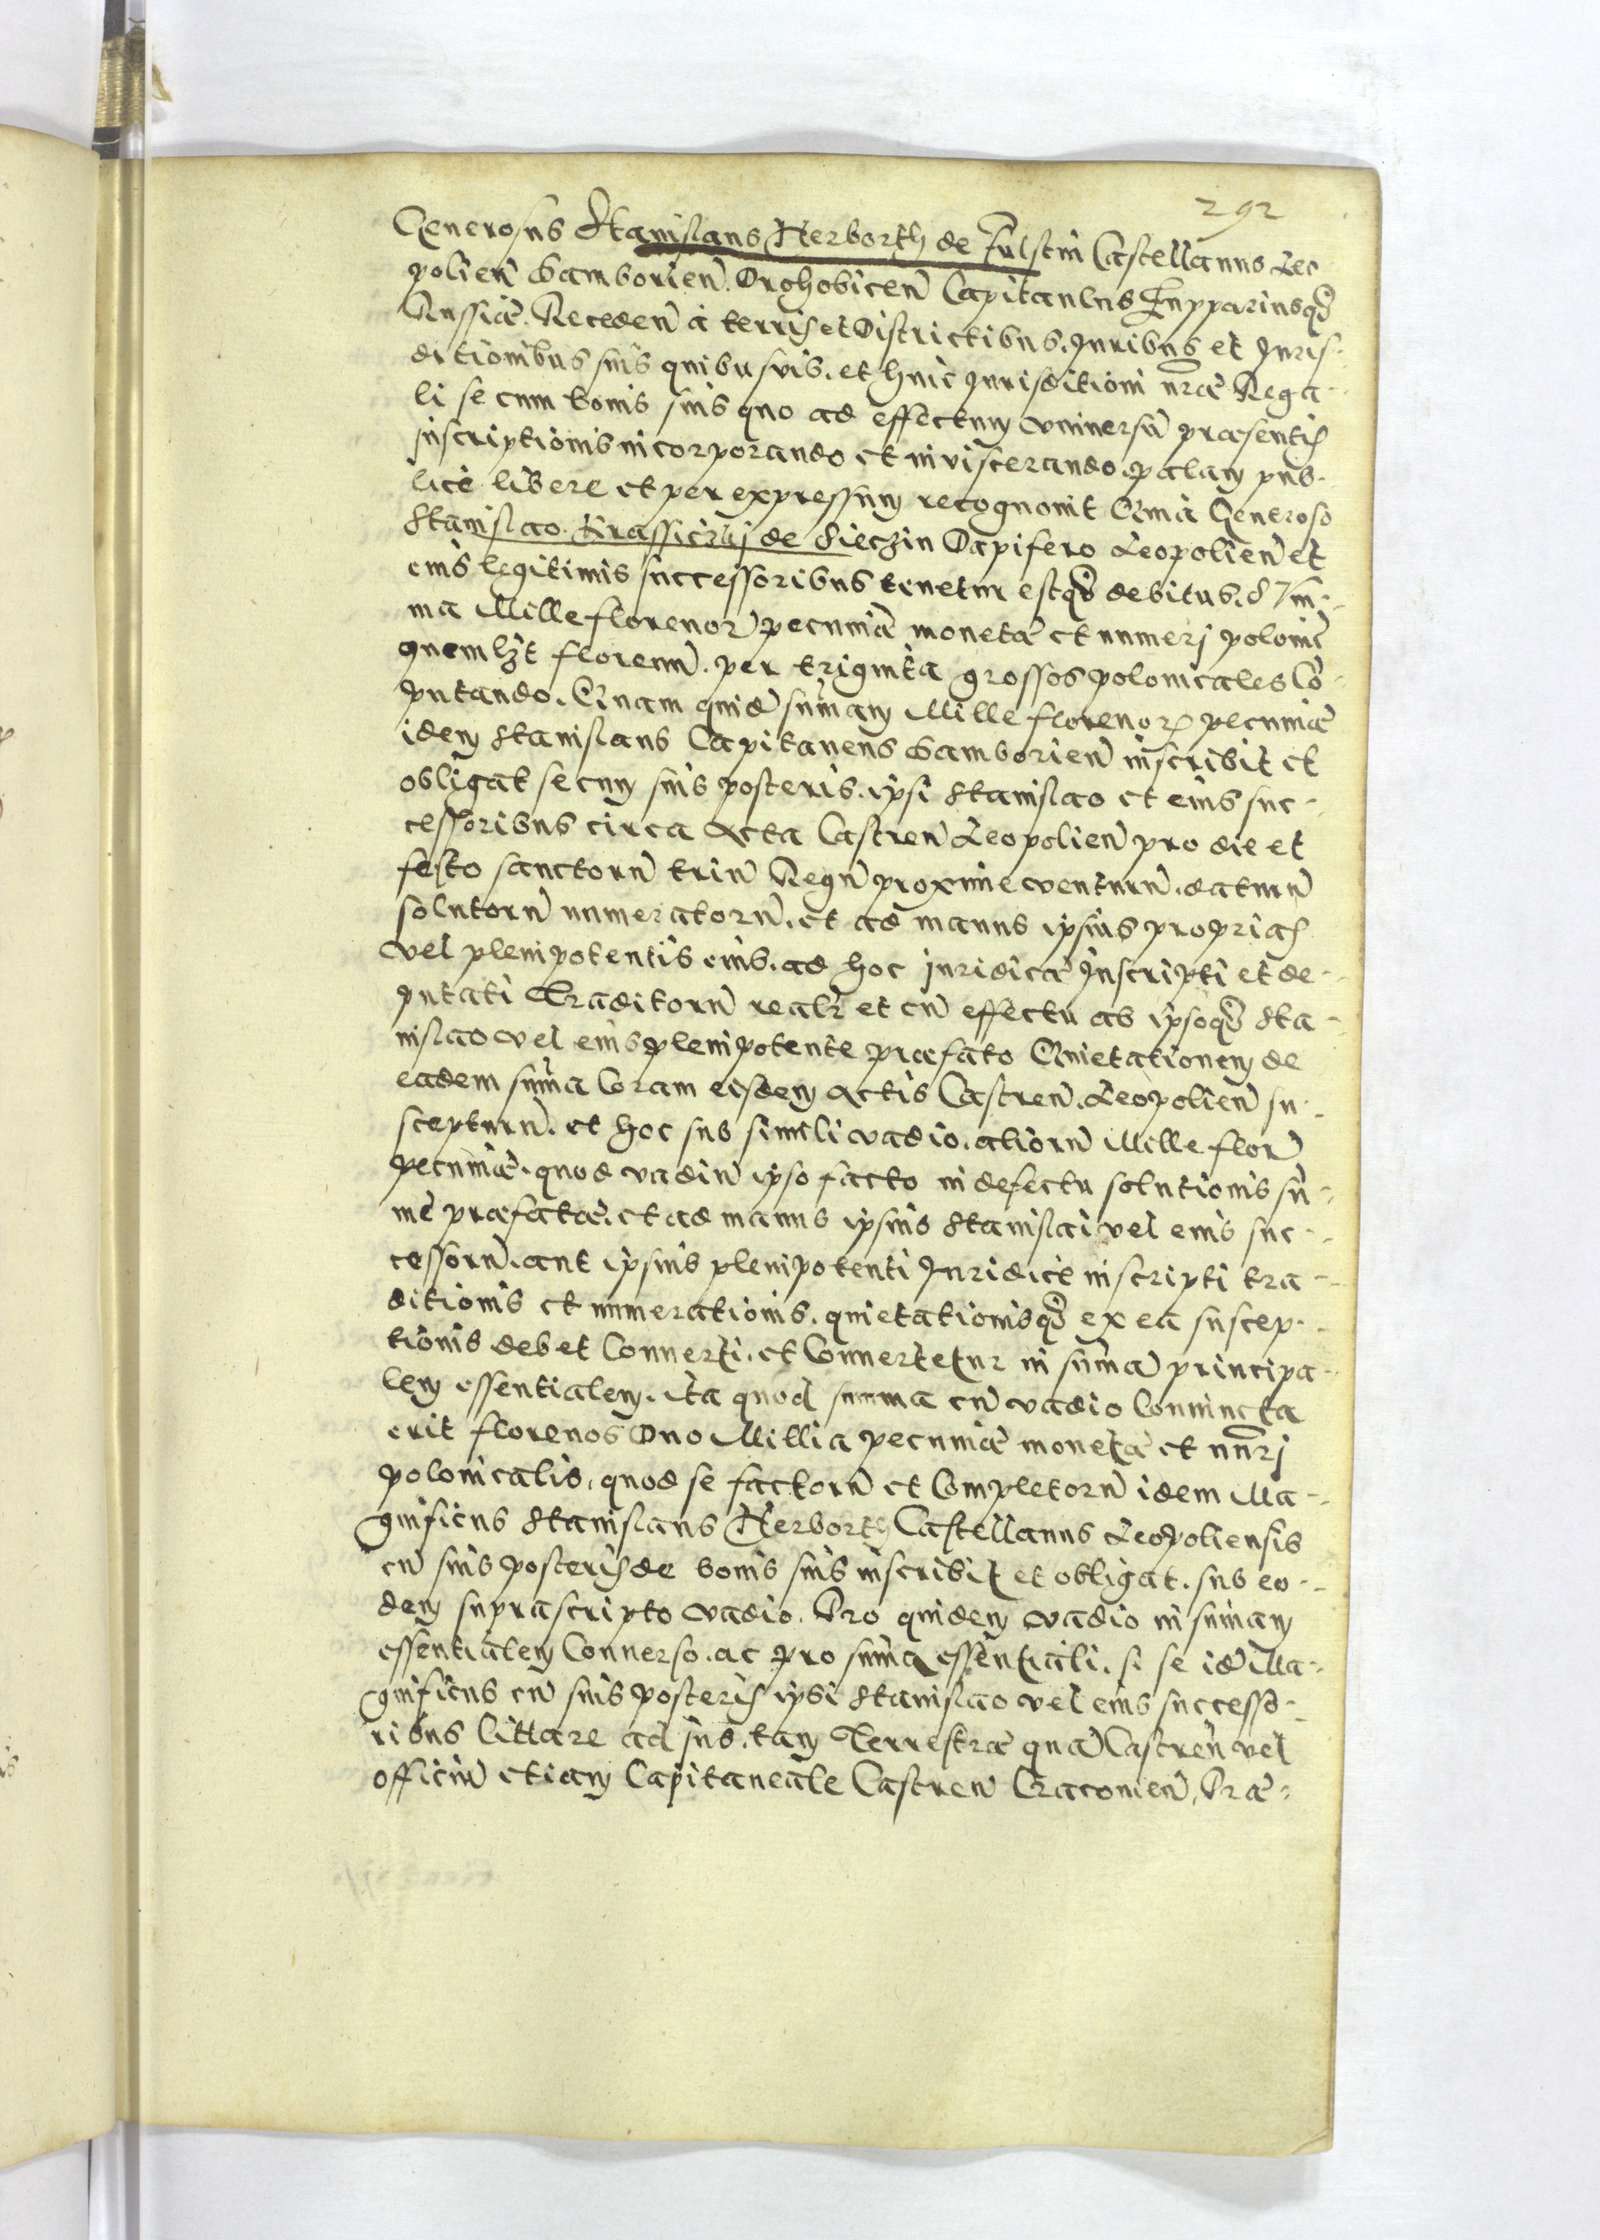 292
Generosus Stanislaus Herborth de Fulstin Castellanus Leo-
polien̄ Samborien̄. Drohobicen̄ Capitanūs Zuppariusq̄
Russiæ. Receden̄ à terris et Districtibus. Iuribus et Juris-
ditionibus suis quibusvis. et huic Jurisditioni n̄ræ Rega-
li se cum bonis suis quo ad effectum vniuersū præsentis
inscriptionis incorporando et inviscerando. palam pub-
lice libere et per expressum recognouit Quia Generoso
Stanislao Krassiczkij de Sieczin Dapifero Leopolien̄ et
eius legitimis successoribus tenetur estq̄ debitus. Sum-
ma Mille florenor̄ pecuniæ monetæ et numeri polonic̄
quemlz̄t florenū. per triginta grossos polonicales Cō-
putando. Quam quid̄ sum̄am Mille florenoꝝ pecuniæ
idem Stanislaus Capitaneus Samborien̄ inscribit et
obligat se cum suis posteris. ipsi Stanislao et eius suc-
cessoribus circa Acta Castren̄ Leopolien̄ pro die et
festo sanctorū triū Regū proxime venturū. daturū
soluturū numeratorū. et ad manus ipsius proprias
vel plenipotentis eius. ad hoc juridicæ Inscripti et de-
putati Traditorū realr̄ et cū effectu ab ipsoq̄ Sta-
nislao vel eius plenipotente præfato Quietationem de
eadem sum̄a Coram eisdem Actis Castren̄. Leopolien̄ su-
scepturū. et hoc sub simili vadio. aliorū Mille flor̄
pecuniæ. quod vadiū ipso facto in defectu solutionis sū-
mæ præfatæ. et ad manus ipsius Stanislai vel eius suc-
cessorū. aut ipsius plenipotenti Juridicè inscripti tra-
ditionis et numerationis. quietationisq̄ ex ea suscep-
tionis debet Conuerti. et Conuertetur in sum̄ā principa-
lem essentialem. Ita quod summa cū vadio Conuincta
erit florenos Duo Millia pecuniæ monetæ et nūri
polonicalis. quod se factorū et Completorū idem Ma-
gnificus Stanislaus Herborth Castellanus Leopoliensis
cū suis posteris de bonis suis inscribit et obligat. sub eo-
dem suprascripto vadio. Pro quidem vadio in sum̄am
essentialem Conuerso. ac pro sum̄a essentiali. si se id̄ Ma-
gnificus cū suis posteris ipsi Stanislao vel eius successo-
ribus Cittare ad ius. tam Terrestræ quā Castren̄ vel
officiū etiam Capitaneale Castren̄ Cracouien̄. Præ-